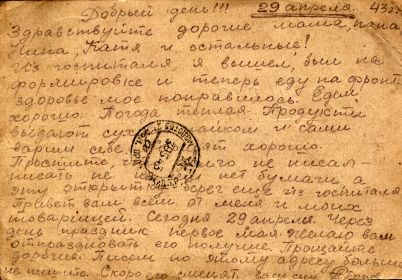 Добрый день!!! 29 апреля. 43 г.
Здравствуйте дорогие мама, папа
Нина, Катя и остальные!
Из госпиталя, я вышел, был на
формировке и теперь еду на фронт
здоровье мое поправилось. Едем
хорошо. Погода теплая. Продукты
выдают пайком и сами
варим себе. хорошо.
Простите, не писал-
писать не нет бумаги а
эту открытку берег еще из госпиталя
Привет вам всем от меня и моих
товарищей. Сегодня 29 апреля. Через
день праздник первое мая желаю вам
отпраздновать его получше. Прощайте
дорогия. Писем по этому адресу больше
не пишите. Скоро его сменят. ваш